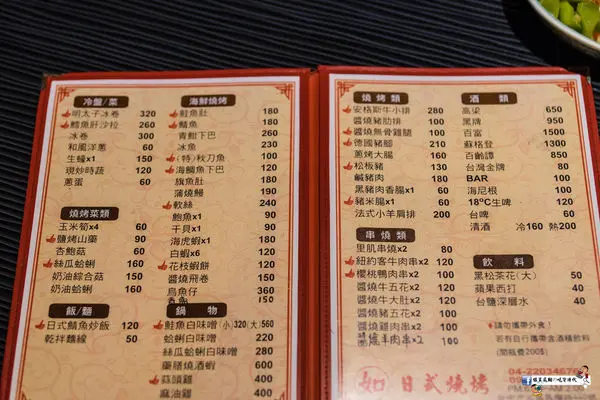 冷盤/菜
明太子冰卷 320
鱈魚肝沙拉 260
冰卷 300
和風洋蔥 60
生蠔x1 150
現炒時蔬 120
蔥蛋 60
燒烤菜類
玉米筍x4 60
鹽烤山藥 90
杏鮑菇 60
絲瓜蛤蜊 60
奶油綜合菇 150
奶油蛤蜊 150
飯/麵
日式鯖魚炒飯 120
乾拌麵線 50
海鮮燒烤
鮭魚肚 180
鯖魚 180
青魽下巴 260
冰魚 130
(特)秋刀魚 100
海鱺魚下巴 100
旗魚肚 180
蒲燒鰻 190
軟絲 240
鮑魚x1 90
干貝x1 90
海虎蝦x1 180
白蝦x6 120
花枝蝦餅 120
醬燒飛卷 150
烏魚子 200
鍋物
鮭魚白味噌(小)320(大)560
蛤蜊白味噌 220
絲瓜蛤蜊白味噌 240
藥膳燒酒蝦 360
蒜頭雞 400
麻油雞 400
燒烤類
安格斯牛小排 280
醬燒豬肋排 100
醬燒無骨雞腿 100
德國豬腳 210
蔥烤大腸 160
松板豬 130
鹹豬肉 100
黑豬肉香腸x1 60
豬米腸x1 60
法式小羊肩排 200
串燒類
里肌肉串燒x2 80
紐約客牛肉串x2 100
櫻桃鴨肉串x2 90
醬燒牛五花x2 80
醬燒牛大肚x2 80
醬燒豬五花x2 80
醬燒雞肉串x2 80
醬燒羊肉串x2 100
酒類
高梁 650
黑牌 950
百富 1500
蘇格登 1300
百齡譚 850
台灣金牌 80
BAR 100
海尼根 100
18℃生啤 120
台啤 60
清酒 冷160 熱200
飲料
黑松茶花(大) 50
蘋果西打 40
台鹽深層水 40
請勿攜帶外食!
若有自行攜帶含酒精飲料
(開瓶費200$)
如 日式燒烤
04-22034676